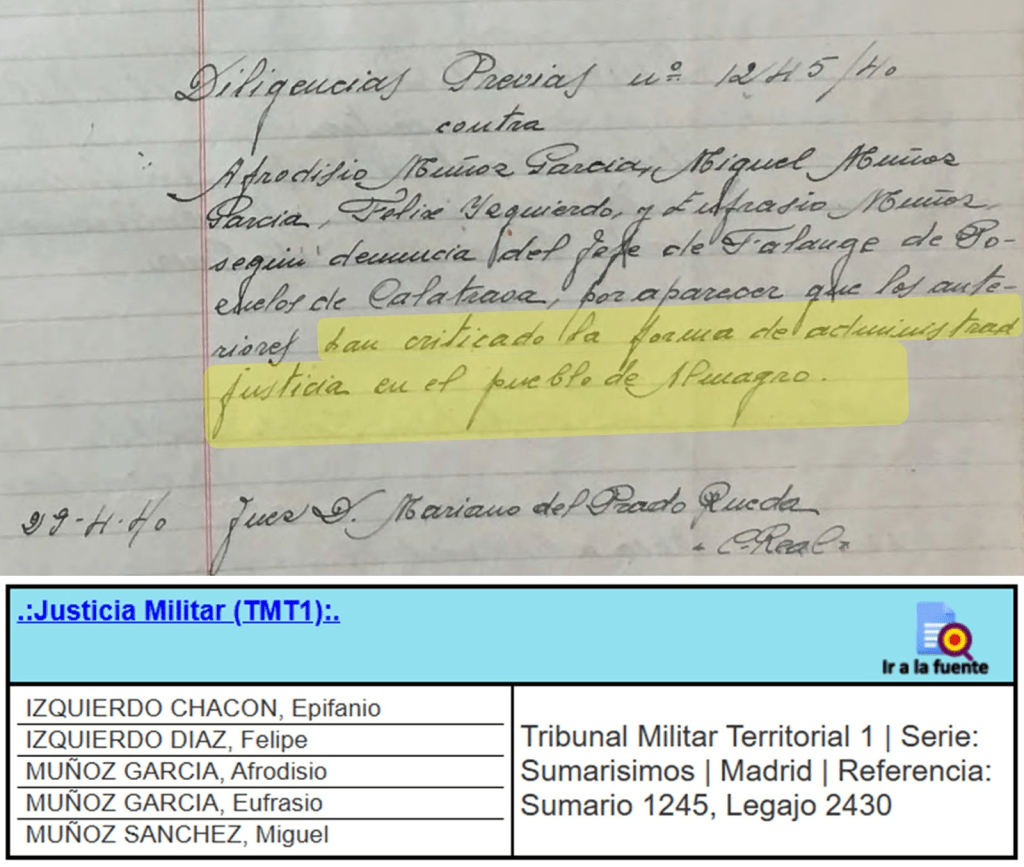 Diligencias Previas nº 1245/40
contra
Afrodisio Muñoz Garcia, Miguel Muñoz
Garcia, Felix Yzquierdo, y Eufrasio Muñoz,
segun denuncia del Jefe de Falange de Po-
zuelos de Calatrava, por aparecer que los ante-
riores han criticado la forma de administrar
justicia en el pueblo de Almagro.
29-4-40 Juez D. Mariano del Prado Rueda
- C. Real -
.:Justicia Militar (TMT1):.
Ir a la fuente
IZQUIERDO CHACON, Epifanio
IZQUIERDO DIAZ, Felipe
MUÑOZ GARCIA, Afrodisio
MUÑOZ GARCIA, Eufrasio
MUÑOZ SANCHEZ, Miguel
Tribunal Militar Territorial 1 | Serie:
Sumarisimos | Madrid | Referencia:
Sumario 1245, Legajo 2430